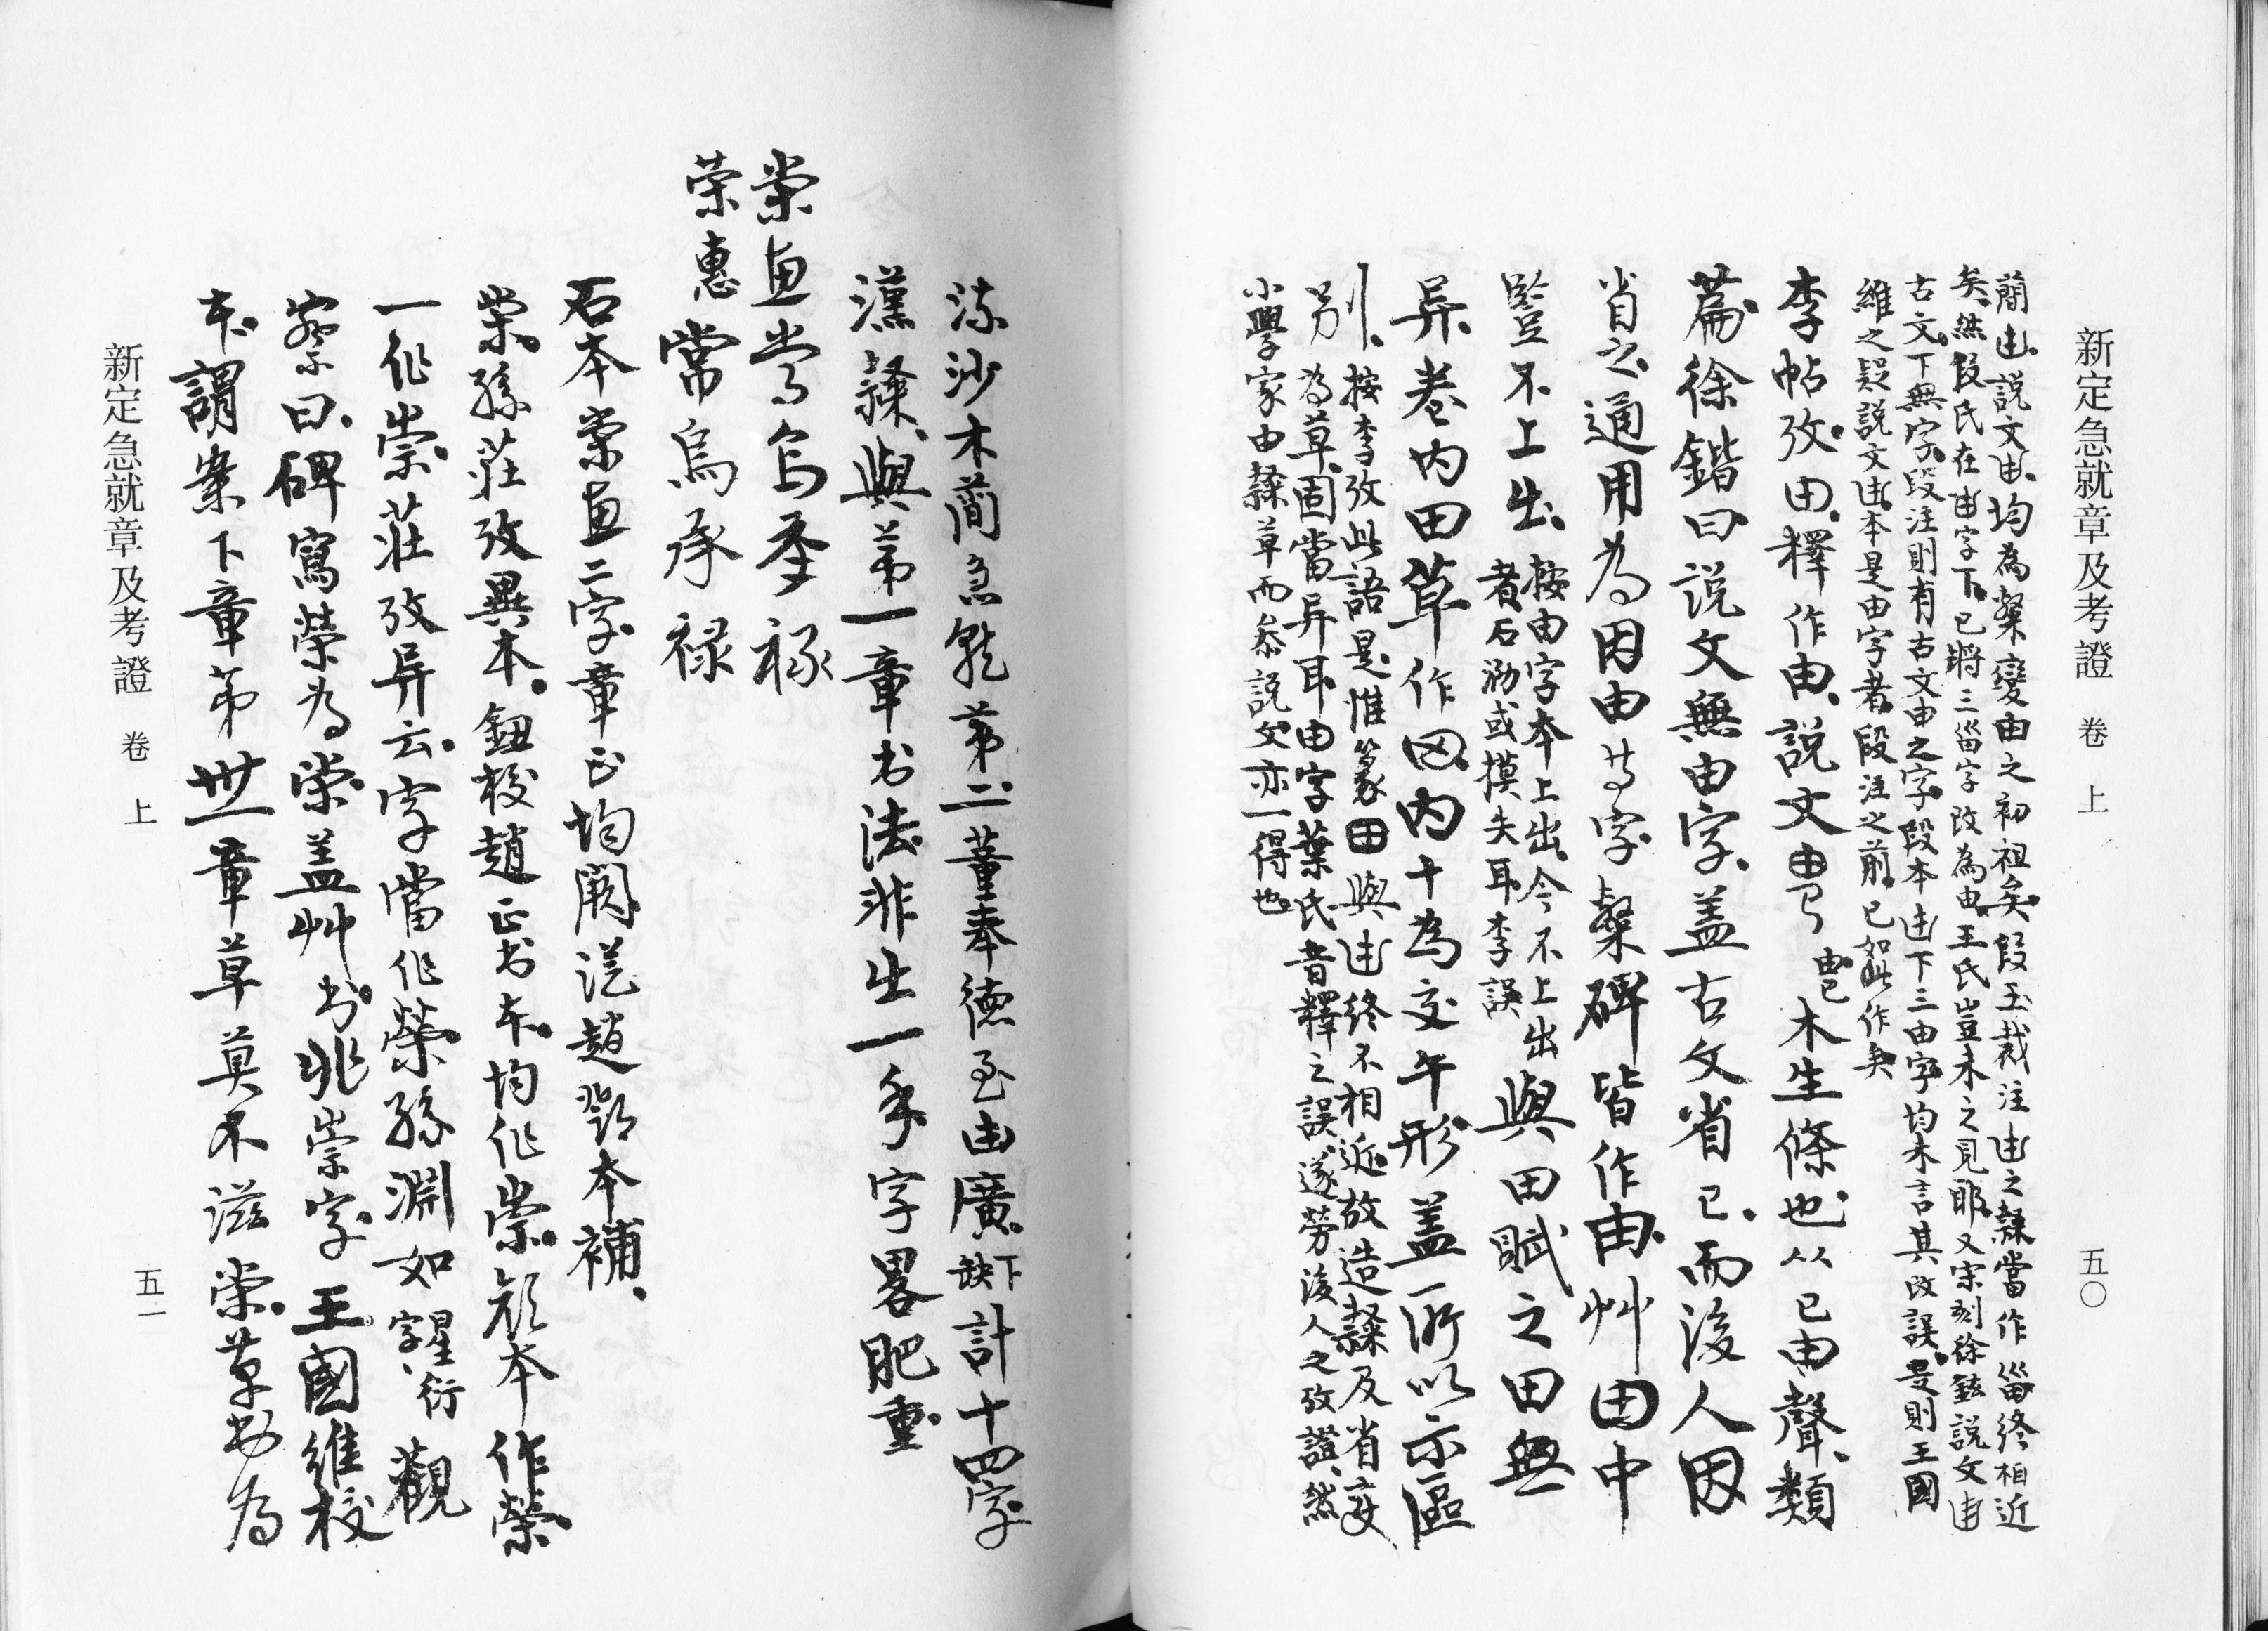 新定急就章及考證 卷上 五〇
簡由說文由均為隸變由之初祖矣段玉裁注由之隸當作甾終相近
矣然段氏在由字下已將三甾字改為由王氏豈未之見耶又宋刻徐鉉說文由
古文下無字段注則有古文由之字段本由下二由字均未言其改誤是則王國
維之疑說文由本是由字者段注之前已如此作矣
李帖攷由釋作由說文 木生條也从已由聲類
篇徐鍇曰說文無由字蓋古文省已而後人因
省之通用為因由等字隸碑皆作由艸田中
豎不上出
按由字本上出今不上出
者石泐或摸失耳李誤
與田賦之田無
异卷内田草作囟内十為交午形蓋所以示區
別
按李攷此語是惟篆田與由終不相近故造隸及省變
為草固當异耳由字葉氏音釋之誤遂勞後人之攷證然
小學家由隸草而參說文亦一得也
流沙木簡急就第二董奉德至由廣
下缺
計十四字
漢隸與第一章书法非出一手字畧肥重
榮惠常烏承祿
榮惠常烏承祿
石本榮惠二字章正均闕從趙鄧本補
榮孫莊攷異本鈕校趙正书本均作崇顏本作榮
一作崇莊攷异云字當作榮孫淵如
星衍
字
觀
察曰碑寫榮為榮蓋艸书非崇字王國維校
本謂案下章第卅一章草莫不滋榮草书為
新定急就章及考證 卷上 五一